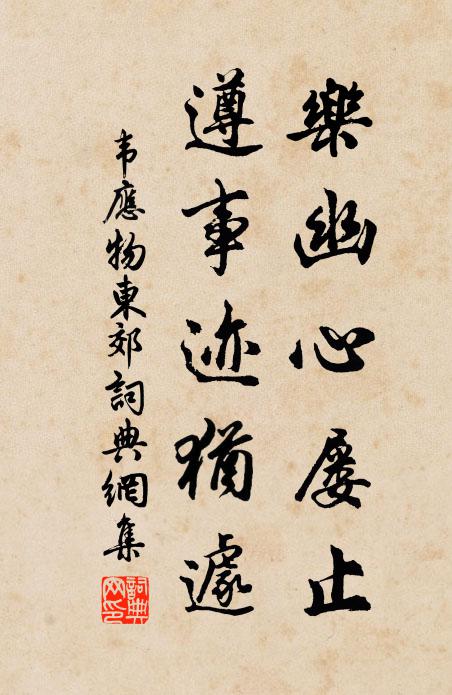 樂幽心屢止
遵事迹猶遽
韦應物東郊詞典網集
詞典网印